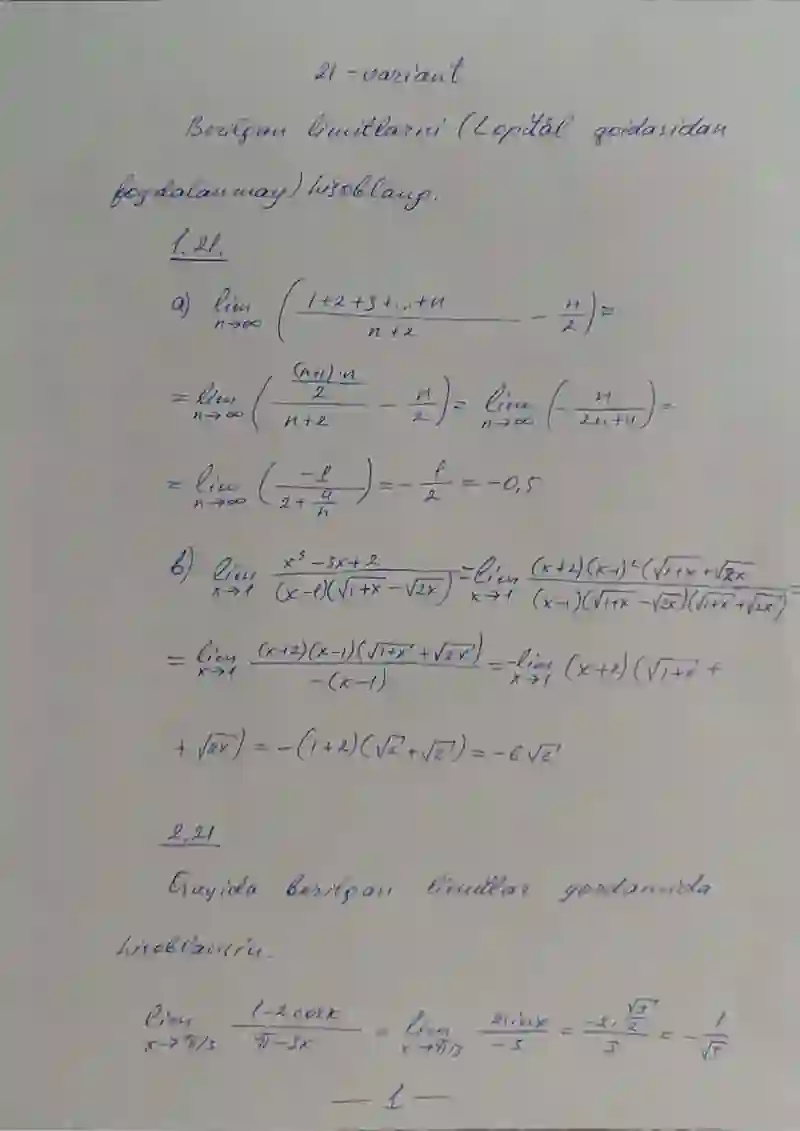 21-variant
Berilgan limitlarni (Lopital qoidasidan
foydalanmay) hisoblang.
1.21.
a) lim n→∞ ( (1+2+3+...+n)/(n+2) - n/2 ) =
= lim n→∞ ( ((n+1)·n/2)/(n+2) - n/2 ) = lim n→∞ ( - n/(2n+4) ) =
= lim n→∞ ( -1/(2+4/n) ) = - 1/2 = -0,5
b) lim x→1 (x³-3x+2)/((x-1)(√1+x - √2x)) = lim x→1 ((x+2)(x-1)²(√1+x + √2x)/((x-1)(√1+x - √2x)(√1+x + √2x)) =
= lim x→1 ((x+2)(x-1)(√1+x + √2x))/(-(x-1)) = -lim x→1 (x+2)(√1+x +
+ √2x) = -(1+2)(√2+√2) = -6√2
2.21
Quyida berilgan limitlar yordamida
lim x→π/3 (1-2cosx)/(π-3x) = lim x→π/3 (2sinx)/(-3) = (-2·√3/2)/3 = - 1/√3
— 1 —